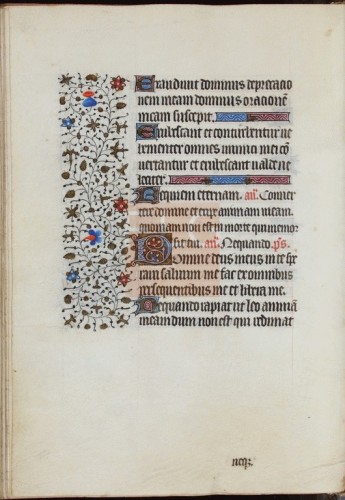 Exaudivit dominus deprecatio
nem meam dominus orationē
meam suscepit.
Erubescant et conturbentur ve
hementer omnes inimici mei cō
vertantur et erubescant valde ve
lociter.
Requiem eternam. añ. Conver
tere domine et eripe animam meam.
quoniam non est in morte qui memor
sit tui. añ. Nequando. p̄s.
Domine deus meus in te spe
ravi salvum me fac ex omnibus
persequentibus me et libera me.
Nequando rapiat ut leo animā
meam dum non est qui redimat
neqʒ